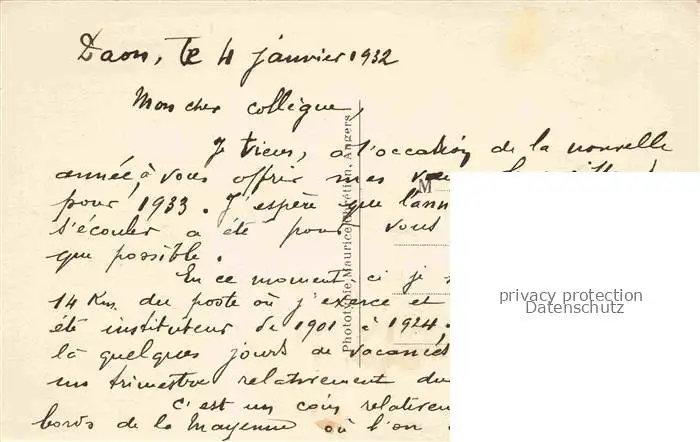 Daon, le 4 janvier 1932
Mon cher collègue,
Je tiens, à l'occasion de la nouvelle
année, à vous offrir mes
pour 1933. J'espère que l'ann
s'écouler a été pour vous
que possible.
En ce moment, ci je
14 Km. du poste où j'exerce et
été instituteur de 1901 à 1924.
là quelques jours de vacances
un trimestre relativement du
C'est un coin relativem
bords de la Mayenne où l'on
M
Phototypie Maurice Chrétien, Angers
privacy protection
Datenschutz